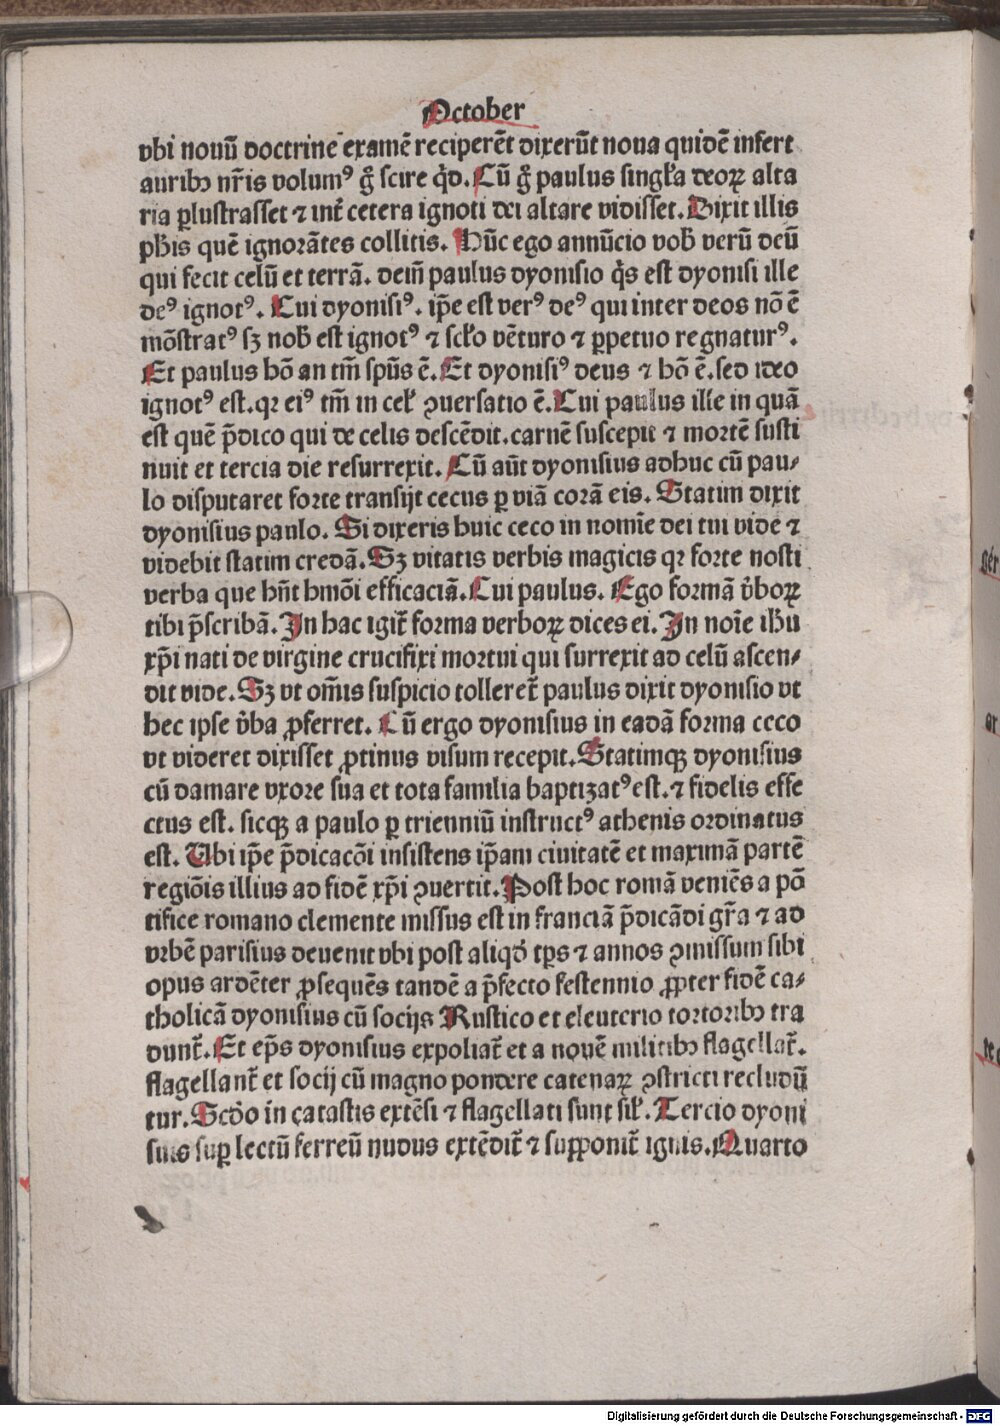 October
vbi nouū doctrine examē reciperēt dixerūt noua quidē infert
auribꝫ nr̄is volumꝰ g̊ scire q̇d. Cū g̊ paulus singl̓a deoꝝ alta
ria ꝑlustrasset ⁊ int̄ cetera ignoti dei altare vidisset. Dixit illis
ph̓is quē ignorātes collitis. Hūc ego annūcio vob̓ verū deū
qui fecit celū et terrā. dem̄ paulus dyonisio q̇s est dyonisi ille
deꝰ ignotꝰ. Cui dyonisiꝰ. ip̄e est verꝰ deꝰ qui inter deos nō ē
mōstratꝰ sꝫ nob̓ est ignotꝰ ⁊ scl̓o vēturo ⁊ ꝑpetuo regnaturꝰ.
Et paulus hō an tm̄ spūs ē. Et dyonisiꝰ deus ⁊ hō ē. sed ideo
ignotꝰ est. qꝛ eiꝰ tm̄ in cel̓ ꝯuersatio ē. Cui paulus ille in quā
est quē p̄dico qui de celis descēdit. carnē suscepit ⁊ mortē susti
nuit et tercia die resurrexit. Cū aūt dyonisius adhuc cū pau⸗
lo disputaret forte transijt cecus ꝑ viā corā eis. Statim dixit
dyonisius paulo. Si dixeris huic ceco in nomīe dei tui vide ⁊
videbit statim credā. Sꝫ vitatis verbis magicis qꝛ forte nosti
verba que hn̄t hmōi efficaciā. Cui paulus. Ego formā v̓boꝝ
tibi p̄scribā. In hac igit̄ forma verboꝝ dices ei. In noīe ih̓u
xp̄i nati de virgine crucifixi mortui qui surrexit ad celū ascen⸗
dit vide. Sꝫ vt om̄is suspicio tolleret̄ paulus dixit dyonisio vt
hec ipse v̓ba ꝓferret. Cū ergo dyonisius in eadā forma ceco
vt videret dixisset ꝓtinus visum recepit. Statimqꝫ dyonisius
cū damare vxore sua et tota familia baptizatꝰ est. ⁊ fidelis effe
ctus est. sicqꝫ a paulo ꝑ trienniū instructꝰ athenis ordinatus
est. Ubi ip̄e p̄dicacōi insistens ip̄am ciuitatē et maximā partē
regiōis illius ad fidē xp̄i ꝯuertit. Post hoc romā veniēs a pō
tifice romano clemente missus est in franciā p̄dicādi gr̄a ⁊ ad
vrbē parisius deuenit vbi post aliqd̓ tp̄s ⁊ annos ꝯmissum sibi
opus ardēter ꝓsequēs tandē a p̄fecto festennio ꝓpter fidē ca⸗
tholicā dyonisius cū socijs Rustico et eleuterio tortoribꝫ tra
dunt̄. Et ep̄s dyonisius expoliat̄ et a nouē militibꝫ flagellat̄.
flagellant̄ et socij cū magno pondere catenaꝝ ꝯstricti recludū
tur. Scd̓o in catastis extēsi ⁊ flagellati sunt sil̓. Tercio dyoni
sius suꝑ lectū ferreū nudus extēdit̄ ⁊ supponit̄ ignis. Quarto
Digitalisierung gefördert durch die Deutsche Forschungsgemeinschaft - DFG